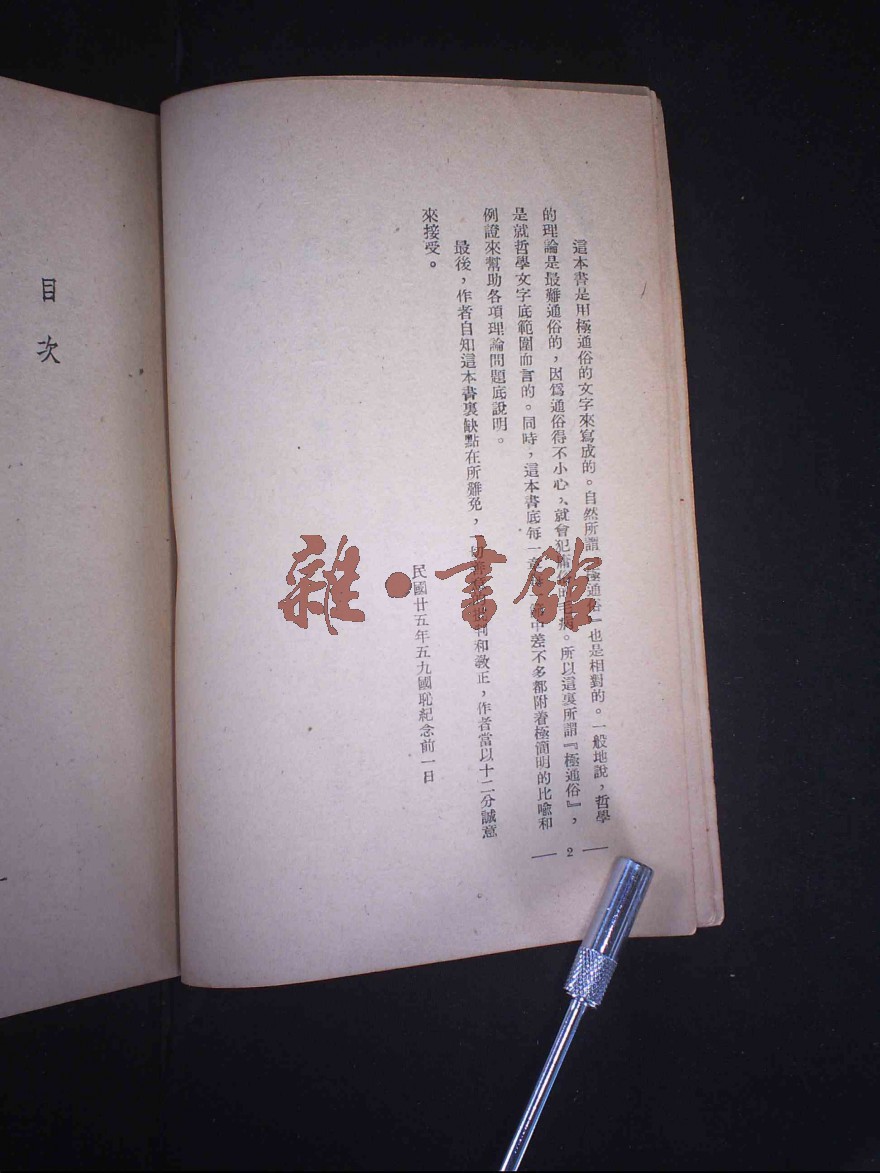 這本書是用極通俗的文字來寫成的。自然所謂『極通俗』也是相對的。一般地說，哲學
的理論是最難通俗的，因爲通俗得不小心，就會犯庸俗的毛病。所以這裏所謂『極通俗』，
是就哲學文字底範圍而言的。同時，這本書底每一章每一節中差不多都附着極簡明的比喩和
例證來幫助各項理論問題底說明。
最後，作者自知這本書裏缺點在所難免，一切批判和敎正，作者當以十二分誠意
來接受。
民國廿五年五九國恥紀念前一日
2
目次
雜·書館